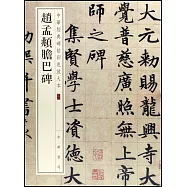 中華經典碑帖彩色放大本
趙孟頫膽巴碑
中華書局
大元敕賜龍興寺
普慈廣照無上帝
師之碑
集賢學士資德大